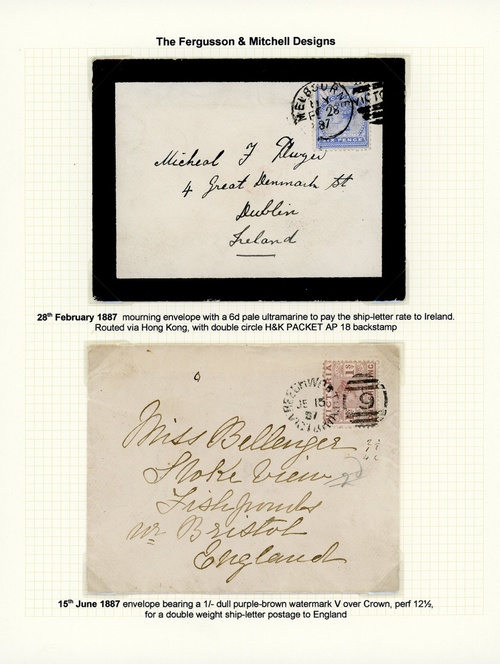 The Fergusson & Mitchell Designs
MELBOURNE
FE 28
87
VICTO
SIX PENCE
Micheal F
4 Great Denmark St
Dublin
Ireland
28th February 1887 mourning envelope with a 6d pale ultramarine to pay the ship-letter rate to Ireland.
Routed via Hong Kong, with double circle H&K PACKET AP 18 backstamp
VICTORIA
JE 15
87
Miss Bellenger
Stoke View
Fishponds
nr Bristol
England
15th June 1887 envelope bearing a 1/- dull purple-brown watermark V over Crown, perf 12½,
for a double weight ship-letter postage to England